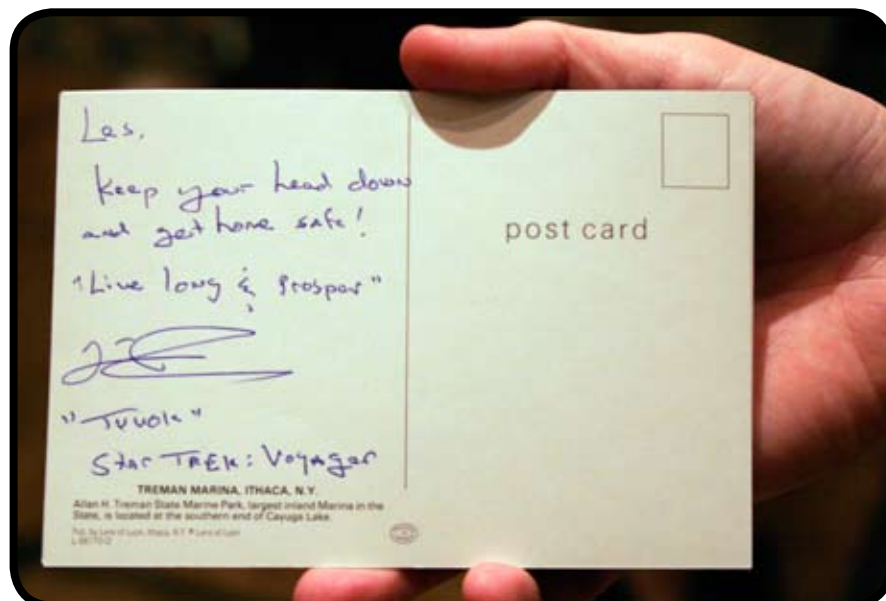 Les,
Keep your head down
and get home safe!
"Live long & Prosper"
"Tuvok"
Star TREK: Voyager
TREMAN MARINA, ITHACA, N.Y.
Allan H. Treman State Marine Park, largest inland Marina in the
State, is located at the southern end of Cayuga Lake.
post card